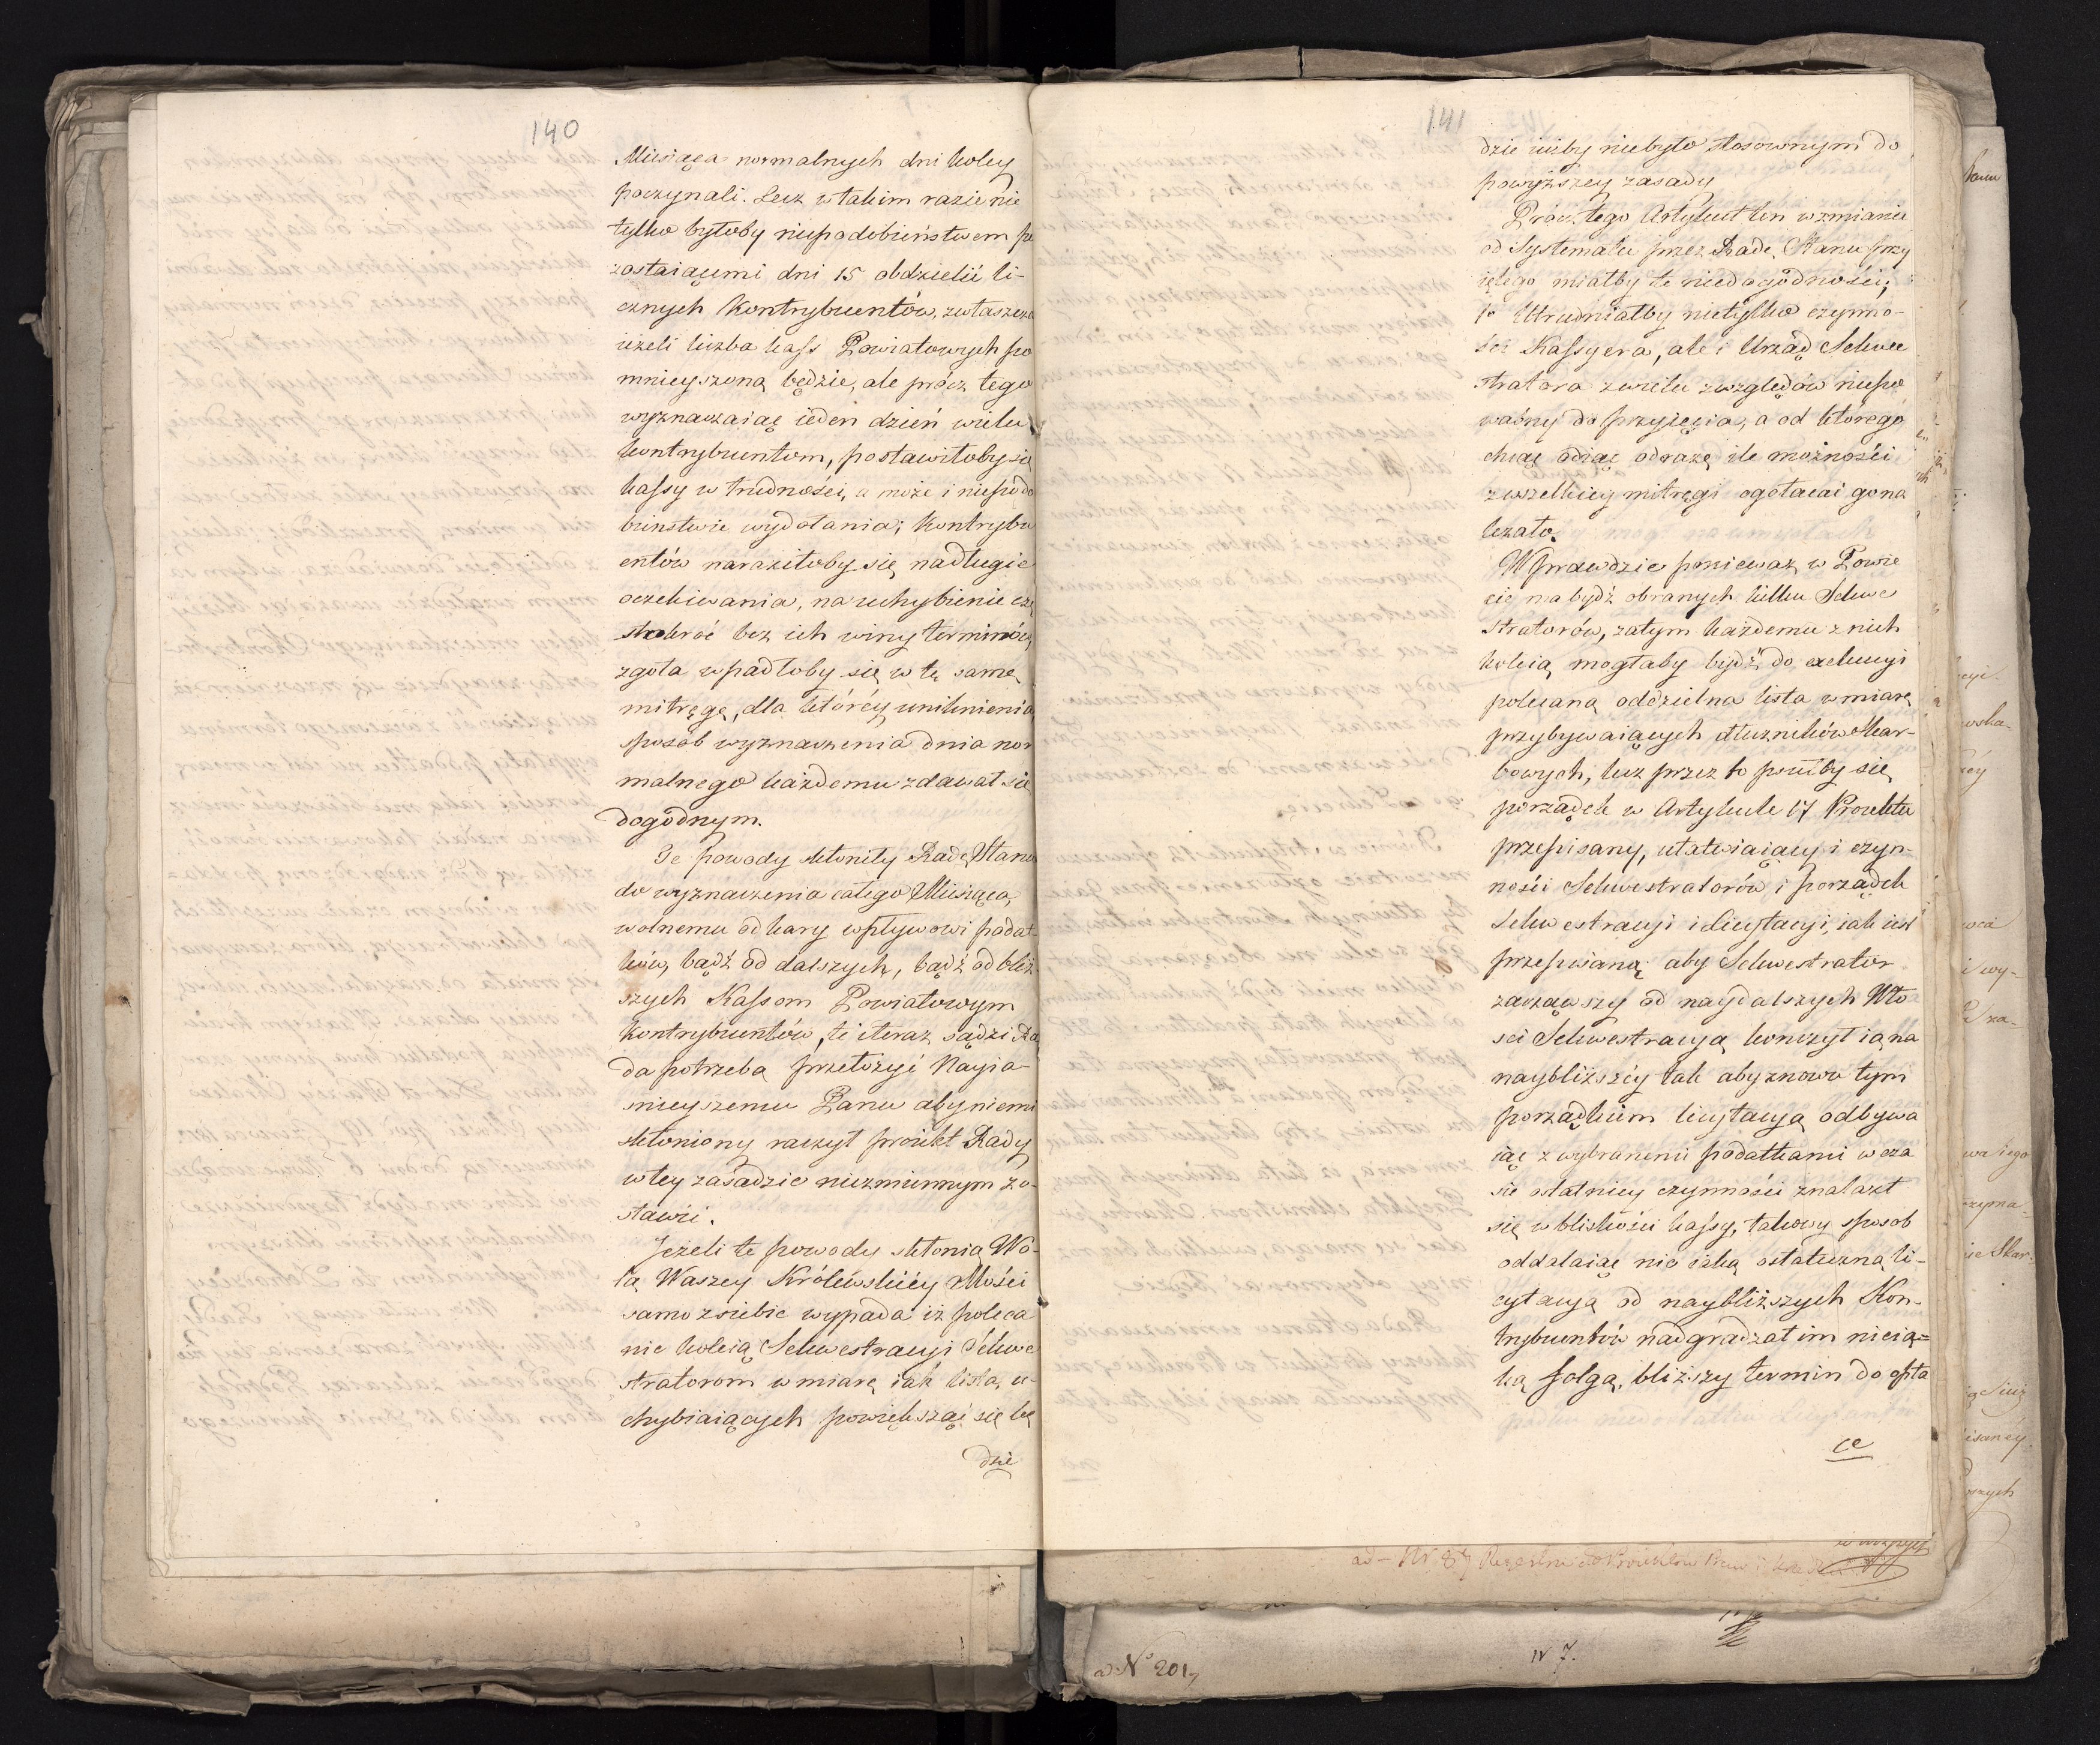 140
Miesiąca normalnych dni koley
poczynali. Lecz w takim razie nie
tylko byłoby niepodobieństwem po
zostaiącemi dni 15 obdzielić li-
cznych Kontrybuentów, zwłaszcza
ieżeli liczba kass Powiatowych po
mnieyszoną będzie, ale prócz tego
wyznaczaiąc ieden dzień wielu
kontrybuentom, postawiłoby się
kassy w trudności, a może i niepodo
bieństwie wydołania; Kontrybu
entów naraziłoby się na długie
oczekiwania, na uchybienie czę
stokroć bez ich winy terminów,
zgoła wpadłoby się w tę samę
mitręgę, dla którey uniknienia
sposób wyznaczenia dnia nor
malnego każdemu zdawał się
dogodnym.
Te powody skłoniły Radę Stanu
do wyznaczenia całego Miesiąca,
wolnemu od kary wpływowi podat-
ków, bądź od dalszych, bądź od bliż-
szych Kassom Powiatowym
Kontrybuentów, te i teraz sądzi Ra
da potrzeba przełożyć Nayia-
śnieyszemu Panu aby niemi
skłoniony raczył proiekt Rady
w tey zasadzie niezmiennym zo-
stawić.
Jeżeli te powody skłonią Wo-
lą Waszey Królewskiéy Mości
samo z siebie wypada iż poleca
nie koleią Sekwestracyi Sekwe
stratorom w miarę iak lista, u-
chybiaiących powiększać się bę
dzie
141
dzie iużby niebyło stosownym do
powyższey zasady
Prócz tego Artykuł ten w zmianie
od Systematu przez Radę Stanu przy
iętego miałby te niedogodności;
1o Utrudniałby nietylko czynno-
ści Kassyera, ale i Urząd Sekwe
stratora z wielu względów niepo
wabny do przyięcia, a od którego
chcąc odiąć odrazę ile możności
z wszelkiey mitręgi ogołacać go na
leżało.
Wprawdzie ponieważ w Powie
cie ma bydź obranych kilku Sekwe
stratorów, zatym każdemu z nich
koleią mogłaby bydź do exekucyi
polecaną oddzielna lista w miarę
przybywaiących dłużników Skar-
bowych, lecz przez to psułby się
porządek w Artykule 17 Proiektu
przepisany, ułatwiaiący i czyn-
ności Sekwestratorów i porządek
Sekwestracyi i Licytacyi, iak iest
przepisaną aby Sekwestrator
zacząwszy od naydalszych Wło
ści Sekwestracyą kończył ią na
naybliższéy tak aby znowu tym
porządkiem licytacyą odbywa
iąc z wybranemi podatkami w cza
sie ostatniey czynności znalazł
się w bliskości kassy, takowy sposob
oddalaiąc nie iaką ostateczną li-
cytacyą od naybliższych Kon-
trybuentów nadgradzał im nieia-
ką folgą, bliższy termin do opła
ce
ad N° 201,
N 7.